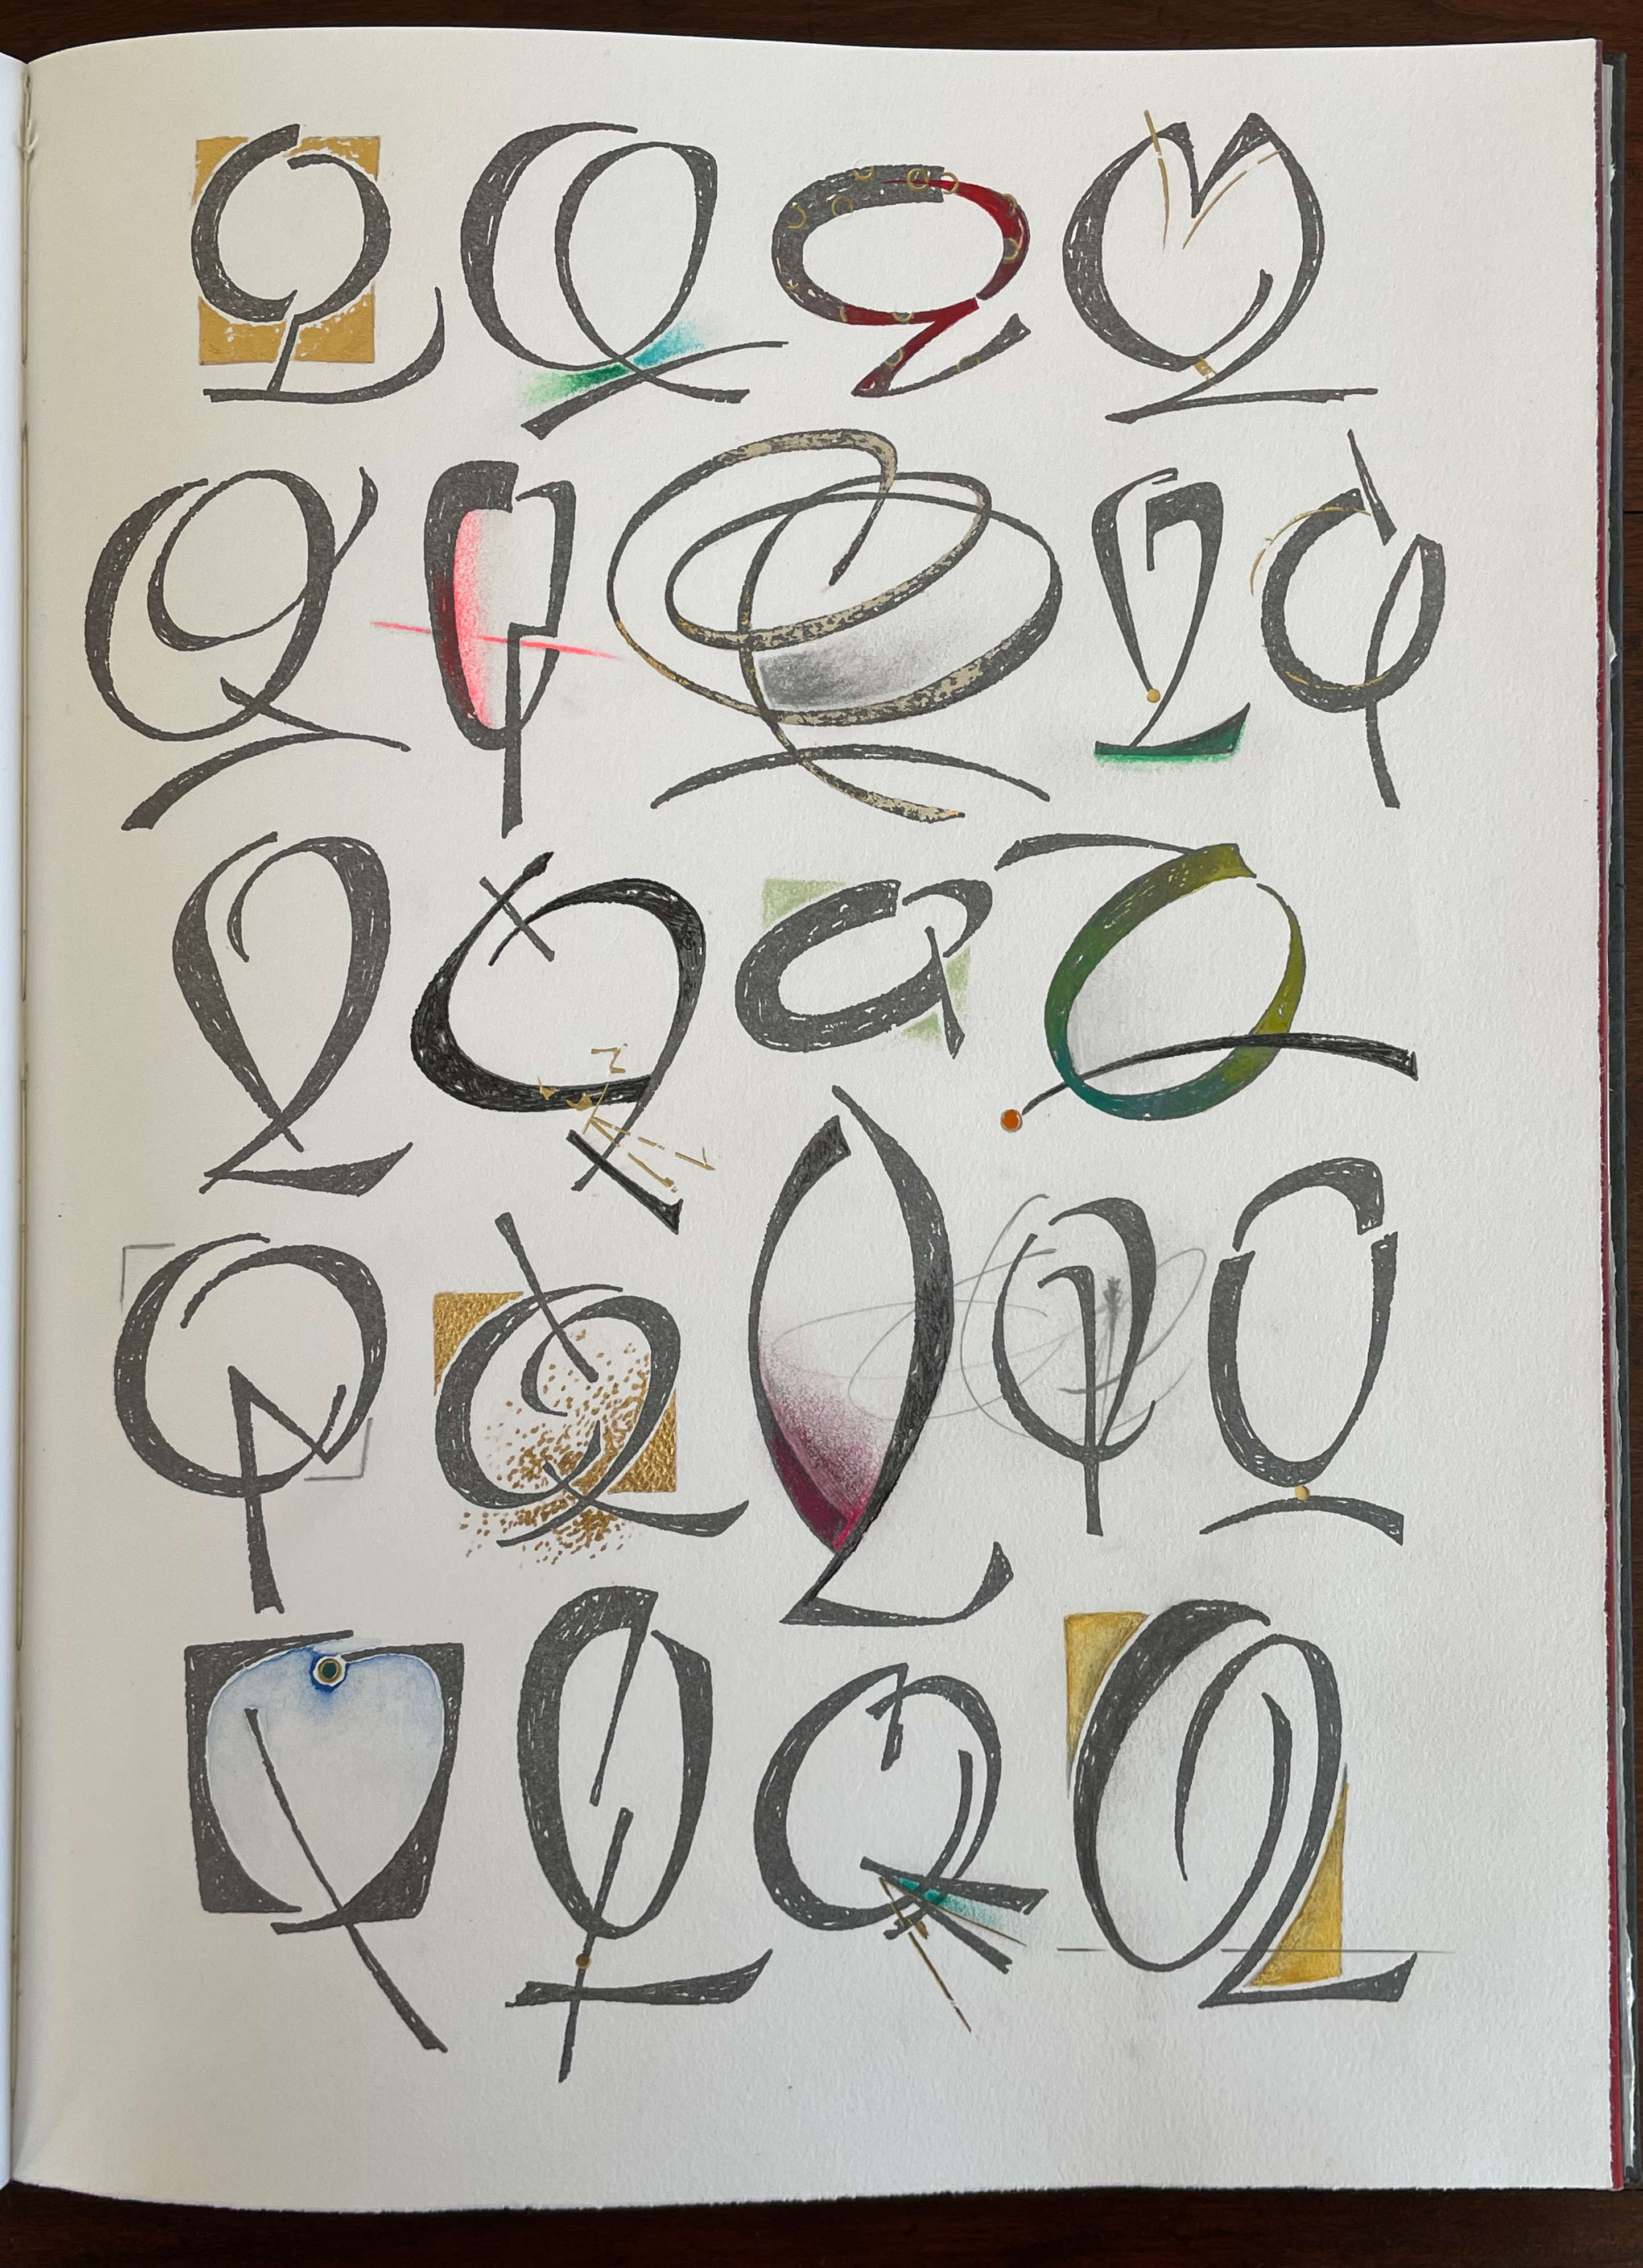 Q Q Q Q
Q Q Q Q Q
Q Q Q Q
Q Q Q Q Q
Q Q Q Q